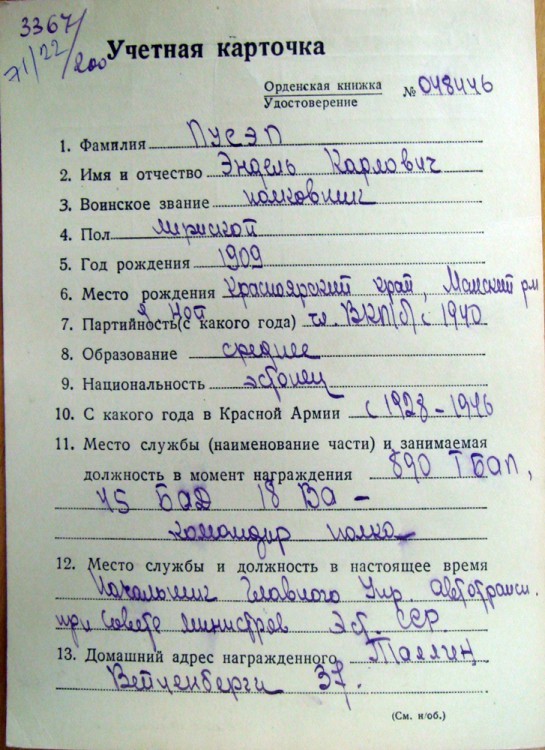 3367/
71/22/200
Учетная карточка
Орденская книжка
Удостоверение
№ 048446
1. Фамилия Пусэп
2. Имя и отчество Эндель Карлович
3. Воинское звание полковник
4. Пол мужской
5. Год рождения 1909
6. Место рождения Красноярский край, Манский рн
7. Партийность (с какого года) чл. ВКП(б) с 1940
8. Образование среднее
9. Национальность эстонец
10. С какого года в Красной Армии с 1928-1946
11. Место службы (наименование части) и занимаемая
должность в момент награждения 890 ТБАП,
45 БАД 18 ВА -
командир полка
12. Место службы и должность в настоящее время
Начальник Главного Упр. автотрансп.
при Совете министров Эст. ССР.
13. Домашний адрес награжденного Таллин,
Вейценберги 37.
(См. н/об.)